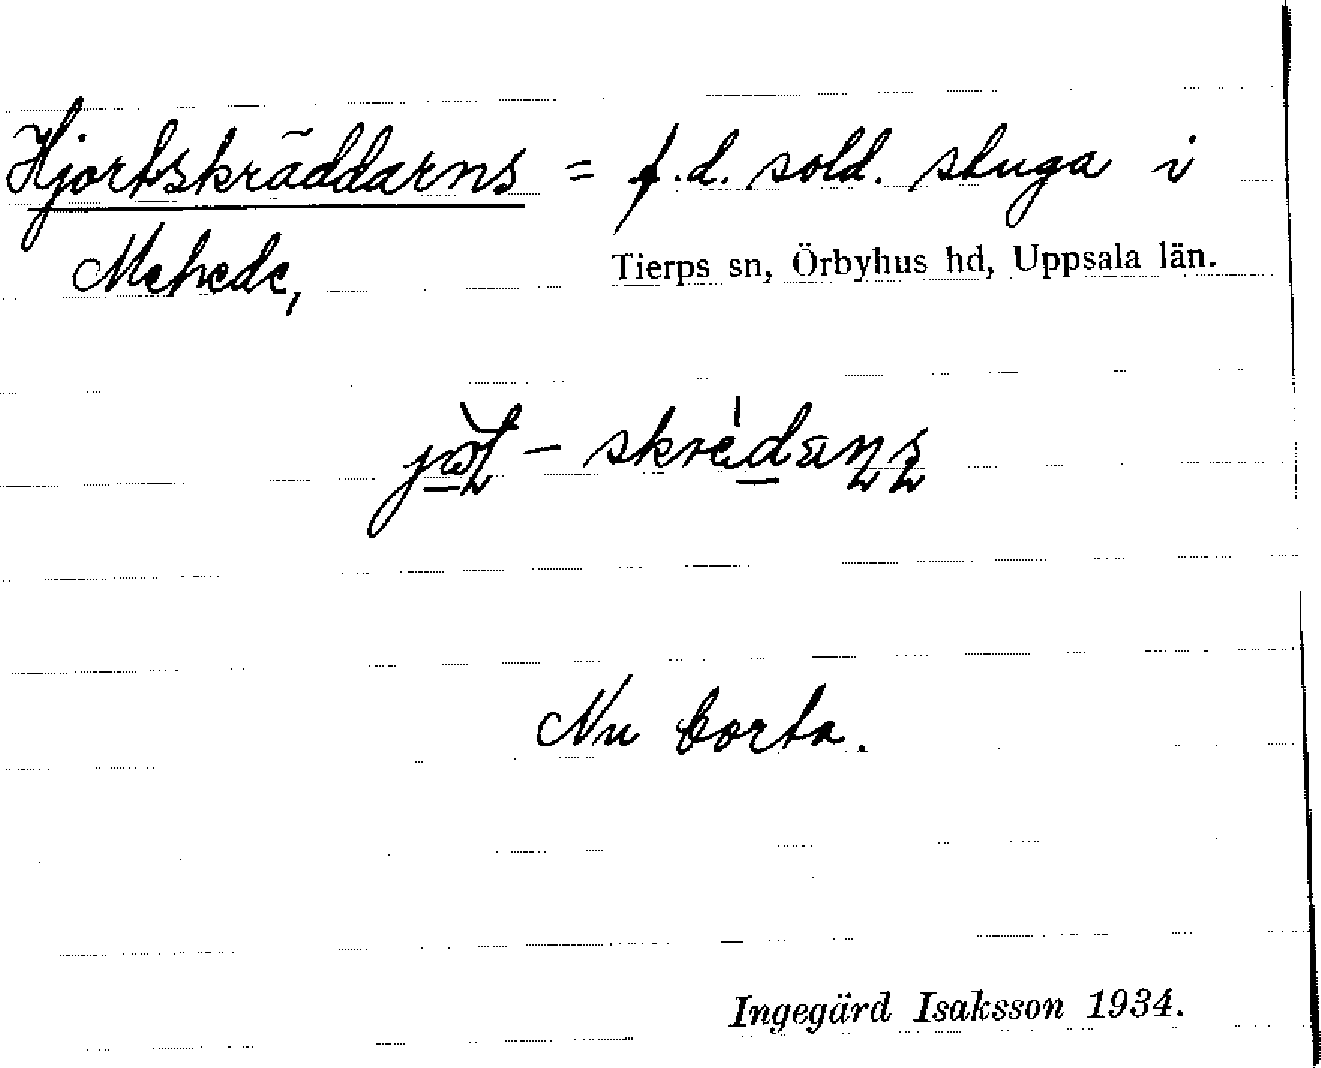 Hjortskräddarns = f.d. sold. stuga i
Mehede, Tierps sn, Örbyhus hd, Uppsala län.
Nu borta.
Ingegärd Isaksson 1934.